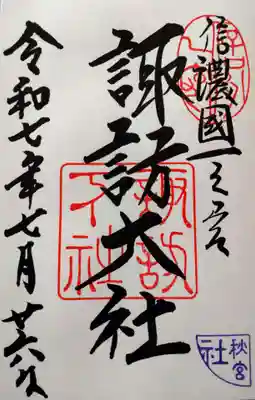 信濃國一之宮
諏訪大社
諏訪
下社
令和七年七月廿六日
秋宮
社